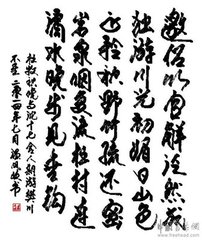 邀侣以官解泛然成
独游川光初媚日山色
正矜秋野竹疏还密
岩泉咽复流杜村连
潏水晚步见垂钩
杜牧秋晚与沈十七舍人期游樊川
不至二〇一四年七月
书